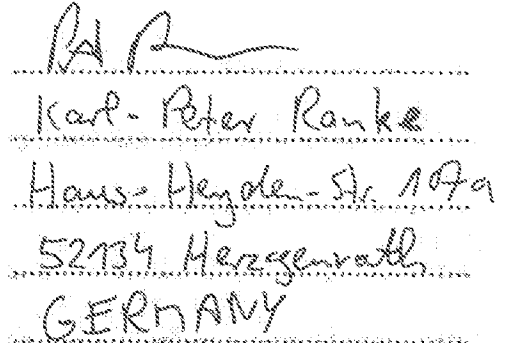 Karl-Peter Ranke
Hans-Heyden-Str. 107a
52134 Herzogenrath
GERMANY